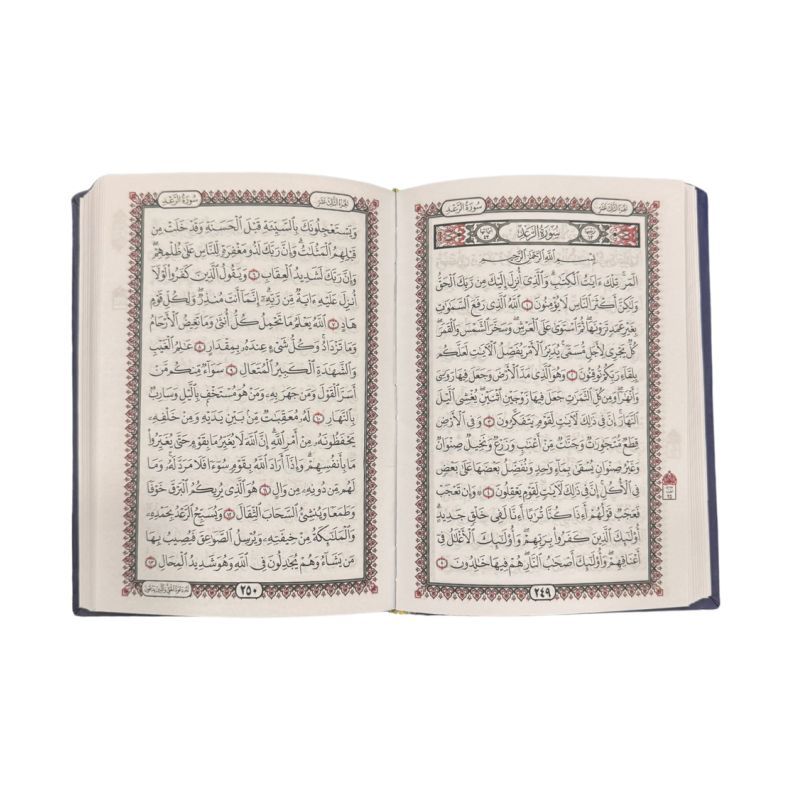 الجزء الثالث عشر
سُورَةُ الرَّعْدِ
سُورَةُ الرَّعْدِ
بِسْمِ ٱللَّهِ ٱلرَّحْمَٰنِ ٱلرَّحِيمِ
الٓمٓرۚ تِلْكَ ءَايَٰتُ ٱلْكِتَٰبِۗ وَٱلَّذِىٓ أُنزِلَ إِلَيْكَ مِن رَّبِّكَ ٱلْحَقُّ
وَلَٰكِنَّ أَكْثَرَ ٱلنَّاسِ لَا يُؤْمِنُونَ ١ ٱللَّهُ ٱلَّذِى رَفَعَ ٱلسَّمَٰوَٰتِ
بِغَيْرِ عَمَدٍ تَرَوْنَهَاۖ ثُمَّ ٱسْتَوَىٰ عَلَى ٱلْعَرْشِۖ وَسَخَّرَ ٱلشَّمْسَ وَٱلْقَمَرَۖ
كُلٌّ يَجْرِى لِأَجَلٍ مُّسَمًّىۚ يُدَبِّرُ ٱلْأَمْرَ يُفَصِّلُ ٱلْءَايَٰتِ لَعَلَّكُم
بِلِقَآءِ رَبِّكُمْ تُوقِنُونَ ٢ وَهُوَ ٱلَّذِى مَدَّ ٱلْأَرْضَ وَجَعَلَ فِيهَا رَوَٰسِىَ
وَأَنْهَٰرًاۖ وَمِن كُلِّ ٱلثَّمَرَٰتِ جَعَلَ فِيهَا زَوْجَيْنِ ٱثْنَيْنِۖ يُغْشِى ٱلَّيْلَ
ٱلنَّهَارَۚ إِنَّ فِى ذَٰلِكَ لَءَايَٰتٍ لِّقَوْمٍ يَتَفَكَّرُونَ ٣ وَفِى ٱلْأَرْضِ
قِطَعٌ مُّتَجَٰوِرَٰتٌ وَجَنَّٰتٌ مِّنْ أَعْنَٰبٍ وَزَرْعٌ وَنَخِيلٌ صِنْوَانٌ
وَغَيْرُ صِنْوَانٍ يُسْقَىٰ بِمَآءٍ وَٰحِدٍ وَنُفَضِّلُ بَعْضَهَا عَلَىٰ بَعْضٍ
فِى ٱلْأُكُلِۚ إِنَّ فِى ذَٰلِكَ لَءَايَٰتٍ لِّقَوْمٍ يَعْقِلُونَ ٤ وَإِن تَعْجَبْ
فَعَجَبٌ قَوْلُهُمْ أَءِذَا كُنَّا تُرَٰبًا أَءِنَّا لَفِى خَلْقٍ جَدِيدٍۗ
أُو۟لَٰٓئِكَ ٱلَّذِينَ كَفَرُوا۟ بِرَبِّهِمْۖ وَأُو۟لَٰٓئِكَ ٱلْأَغْلَٰلُ فِىٓ
أَعْنَاقِهِمْۖ وَأُو۟لَٰٓئِكَ أَصْحَٰبُ ٱلنَّارِۖ هُمْ فِيهَا خَٰلِدُونَ ٥
٢٤٩
الجزء الثالث عشر
سُورَةُ الرَّعْدِ
وَيَسْتَعْجِلُونَكَ بِٱلسَّيِّئَةِ قَبْلَ ٱلْحَسَنَةِ وَقَدْ خَلَتْ مِن
قَبْلِهِمُ ٱلْمَثُلَٰتُۗ وَإِنَّ رَبَّكَ لَذُو مَغْفِرَةٍ لِّلنَّاسِ عَلَىٰ ظُلْمِهِمْۖ
وَإِنَّ رَبَّكَ لَشَدِيدُ ٱلْعِقَابِ ٦ وَيَقُولُ ٱلَّذِينَ كَفَرُوا۟ لَوْلَآ
أُنزِلَ عَلَيْهِ ءَايَةٌ مِّن رَّبِّهِۦٓۗ إِنَّمَآ أَنتَ مُنذِرٌۖ وَلِكُلِّ قَوْمٍ
هَادٍ ٧ ٱللَّهُ يَعْلَمُ مَا تَحْمِلُ كُلُّ أُنثَىٰ وَمَا تَغِيضُ ٱلْأَرْحَامُ
وَمَا تَزْدَادُۖ وَكُلُّ شَىْءٍ عِندَهُۥ بِمِقْدَارٍ ٨ عَٰلِمُ ٱلْغَيْبِ
وَٱلشَّهَٰدَةِ ٱلْكَبِيرُ ٱلْمُتَعَالِ ٩ سَوَآءٌ مِّنكُم مَّنْ
أَسَرَّ ٱلْقَوْلَ وَمَن جَهَرَ بِهِۦ وَمَنْ هُوَ مُسْتَخْفٍۭ بِٱلَّيْلِ وَسَارِبٌۢ
بِٱلنَّهَارِ ١٠ لَهُۥ مُعَقِّبَٰتٌ مِّنۢ بَيْنِ يَدَيْهِ وَمِنْ خَلْفِهِۦ
يَحْفَظُونَهُۥ مِنْ أَمْرِ ٱللَّهِۗ إِنَّ ٱللَّهَ لَا يُغَيِّرُ مَا بِقَوْمٍ حَتَّىٰ يُغَيِّرُوا۟
مَا بِأَنفُسِهِمْۗ وَإِذَآ أَرَادَ ٱللَّهُ بِقَوْمٍ سُوٓءًا فَلَا مَرَدَّ لَهُۥۚ وَمَا
لَهُم مِّن دُونِهِۦ مِن وَالٍ ١١ هُوَ ٱلَّذِى يُرِيكُمُ ٱلْبَرْقَ خَوْفًا
وَطَمَعًا وَيُنشِئُ ٱلسَّحَابَ ٱلثِّقَالَ ١٢ وَيُسَبِّحُ ٱلرَّعْدُ بِحَمْدِهِۦ
وَٱلْمَلَٰٓئِكَةُ مِنْ خِيفَتِهِۦ وَيُرْسِلُ ٱلصَّوَٰعِقَ فَيُصِيبُ بِهَا
مَن يَشَآءُ وَهُمْ يُجَٰدِلُونَ فِى ٱللَّهِ وَهُوَ شَدِيدُ ٱلْمِحَالِ ١٣
٢٥٠